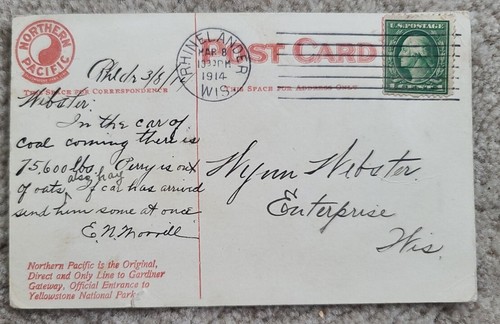 NORTHERN
PACIFIC
POST CARD
RHINELANDER
MAR 8
1914
WIS.
U.S. POSTAGE
THIS SPACE FOR CORRESPONDENCE
THIS SPACE FOR ADDRESS ONLY
3/8/
Webster:
In the car of
coal coming there is
75.600 lbs. Perry is out
of oats, also hay If car has arrived
send him some at once
E. N. Morrill
Wynn Webster
Enterprise
Wis.
Northern Pacific is the Original,
Direct and Only Line to Gardiner
Gateway, Official Entrance to
Yellowstone National Park